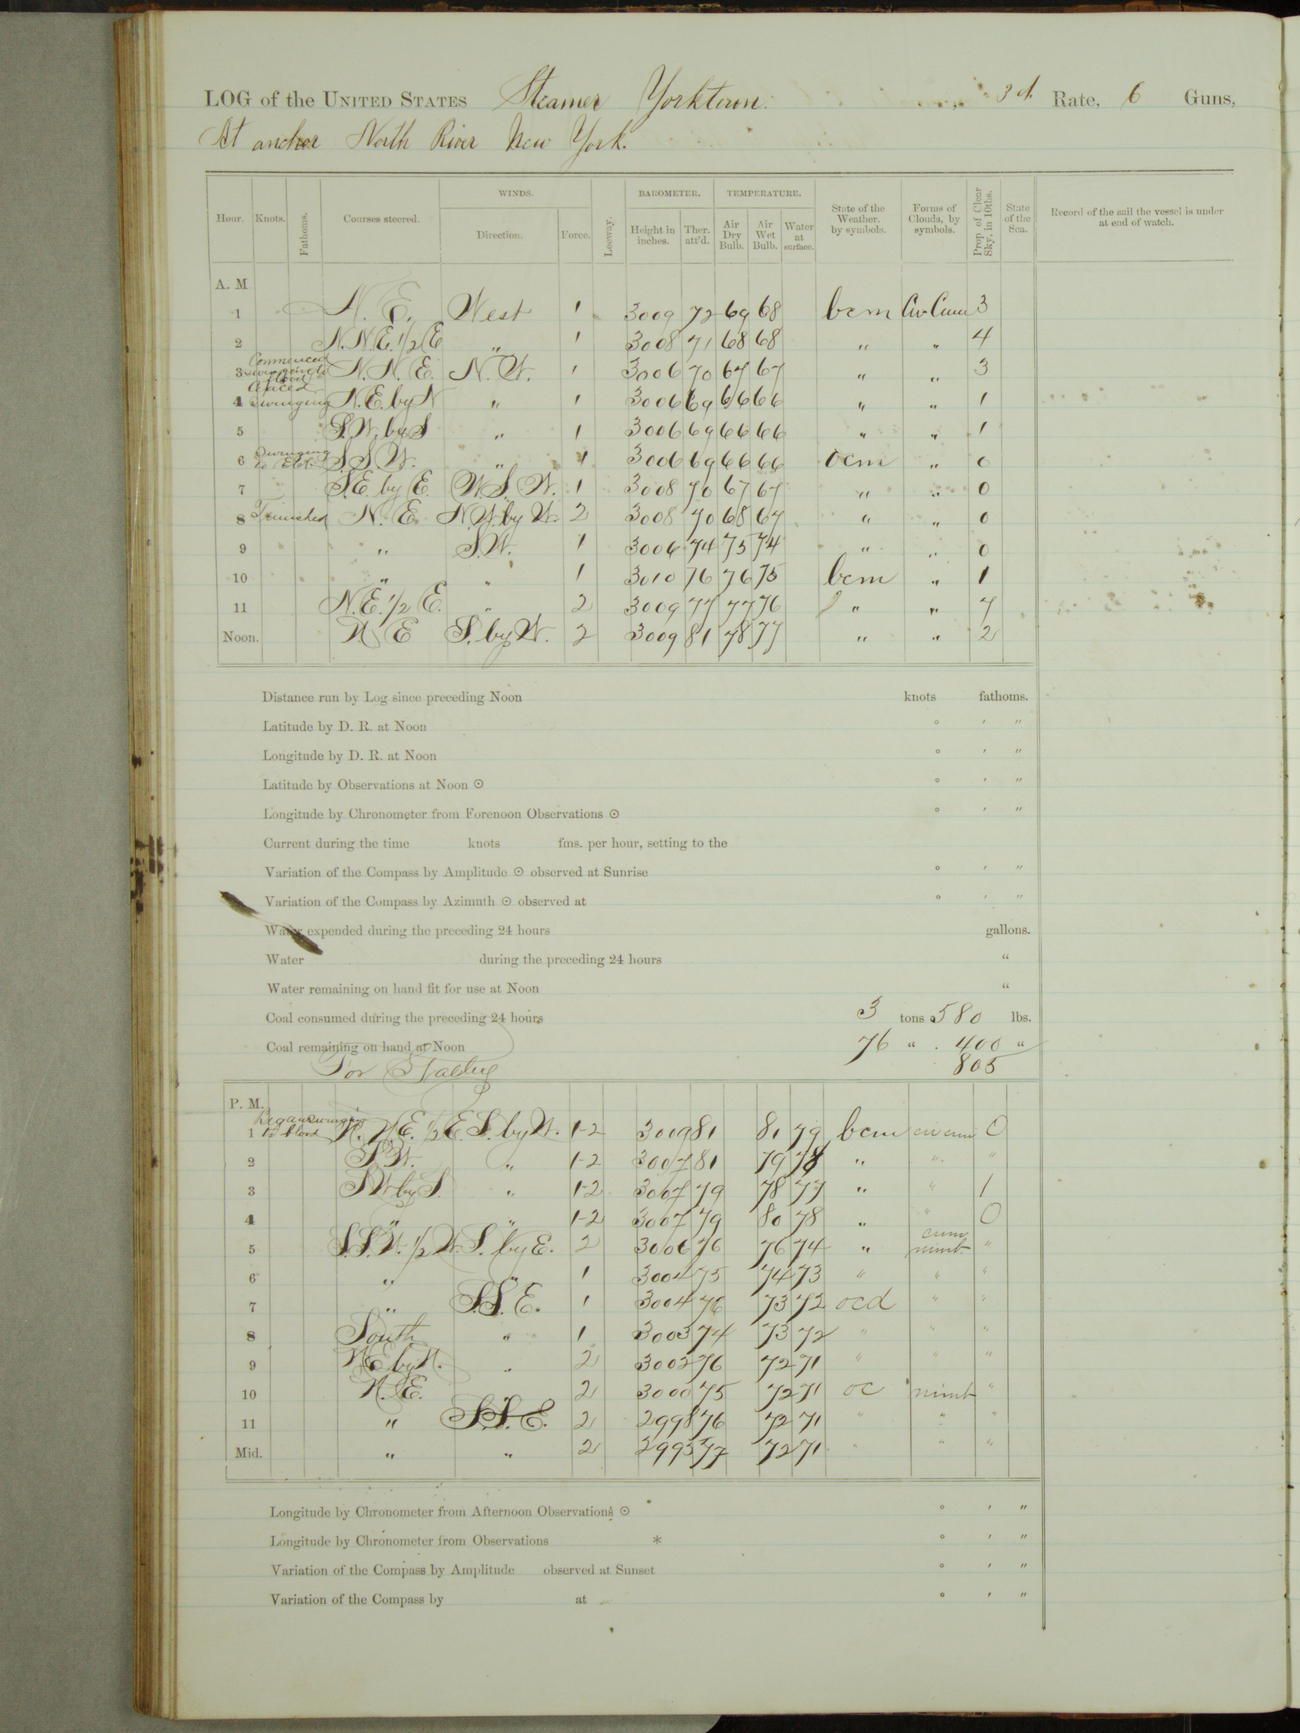 LOG of the UNITED STATES Steamer Yorktown. 3d Rate, 6 Guns,
At anchor North River New York.
WINDS. BAROMETER. TEMPERATURE.
Hour. Knots. Fathoms. Courses steered. Direction. Force. Leeway. Height in inches. Ther. att'd. Air Dry Bulb. Air Wet Bulb. Water at surface. State of the Weather. by symbols. Forms of Clouds, by symbols. Prop. of Clear Sky, in 10ths. State of the Sea. Record of the sail the vessel is under at end of watch.
A. M
1 N. E. West 1 3009 72 69 68 bcm Cir Cum 3
2 N.N.E. 1/2 E " 1 3008 71 68 68 " " 4
Commenced
3 swinging to flood N. N. E. N. W. 1 3006 70 67 67 " " 3
4 swinging N.E. by N " 1 3006 69 66 66 " " 1
5 S.W. by S " 1 3006 69 66 66 " " 1
6 Swinging to Ebb. S.S.W. " 1 3006 69 66 66 ocm " 0
7 S.E. by E. W.S.W. 1 3008 70 67 67 " " 0
8 N. E. N.W. by W. 2 3008 70 68 67 " " 0
9 " S.W. 1 3006 74 75 74 " " 0
10 " " 1 3010 76 76 75 bcm " 1
11 N.E. 1/2 E. " 2 3009 77 77 76 " " 7
Noon. N E S. by W. 2 3009 81 78 77 " " 2
Distance run by Log since preceding Noon knots fathoms.
Latitude by D. R. at Noon ° ′ ″
Longitude by D. R. at Noon ° ′ ″
Latitude by Observations at Noon ⊙ ° ′ ″
Longitude by Chronometer from Forenoon Observations ⊙ ° ′ ″
Current during the time knots fms. per hour, setting to the
Variation of the Compass by Amplitude ⊙ observed at Sunrise ° ′ ″
Variation of the Compass by Azimuth ⊙ observed at ° ′ ″
Water expended during the preceding 24 hours gallons.
Water during the preceding 24 hours "
Water remaining on hand fit for use at Noon "
Coal consumed during the preceding 24 hours 3 tons 580 lbs.
Coal remaining on hand at Noon 76 " 400 "
For 805
P. M.
Began swinging
1 to flood N. N. E. 1/2 E S. by W. 1-2 3009 81 81 79 bcm cir cum 0
2 S.W. " 1-2 3007 81 79 78 " " "
3 S.W. by S. " 1-2 3007 79 78 77 " " 1
4 " " 1-2 3007 79 80 78 " " 0
5 S.S.W. 1/2 W. S. by E. 2 3006 76 76 74 " cum nimb "
6 " " 1 3004 75 74 73 " " "
7 " S.S.E. 1 3004 76 73 72 ocd " "
8 South " 1 3003 74 73 72 " " "
9 N.E. by N. " 2 3002 76 72 71 " " "
10 N. E. " 2 3000 75 72 71 oc nimb "
11 " S.S.E. 2 2998 76 72 71 " " "
Mid. " " 2 2995 77 72 71 " " "
Longitude by Chronometer from Afternoon Observations ⊙ ° ′ ″
Longitude by Chronometer from Observations * ° ′ ″
Variation of the Compass by Amplitude observed at Sunset ° ′ ″
Variation of the Compass by at ° ′ ″